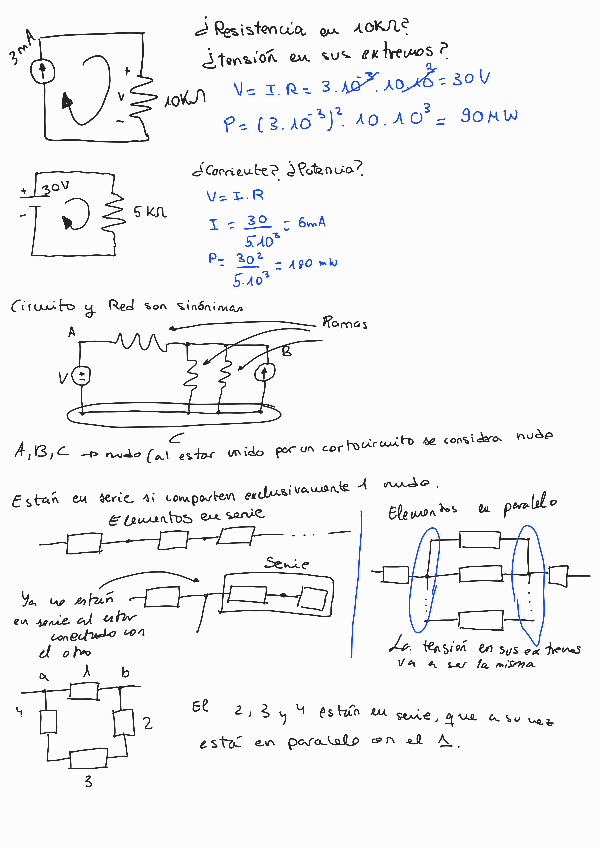 ¿Resistencia en 10KΩ?
3mA
¿tensión en sus extremos?
+
V
-
10KΩ
V= I.R = 3.10⁻³.10.10³ = 30V
P= (3.10⁻³)².10.10³ = 90MW
¿Corriente? ¿Potencia?
+ 30V
-
5KΩ
V= I.R
I = 30/5.10³ = 6mA
P= 30²/5.10³ = 180 mW
Circuito y Red son sinónimas
A
Ramas
B
V
C
A, B, C → nudo (al estar unido por un cortocircuito se considera nudo
Están en serie si comparten exclusivamente 1 nudo.
Elementos en serie
Elementos en paralelo
Serie
Ya no están
en serie al estar
conectado con
el otro
La tensión en sus extremos
va a ser la misma
a 1 b
4
2
3
El 2, 3 y 4 están en serie, que a su vez
está en paralelo con el 1.